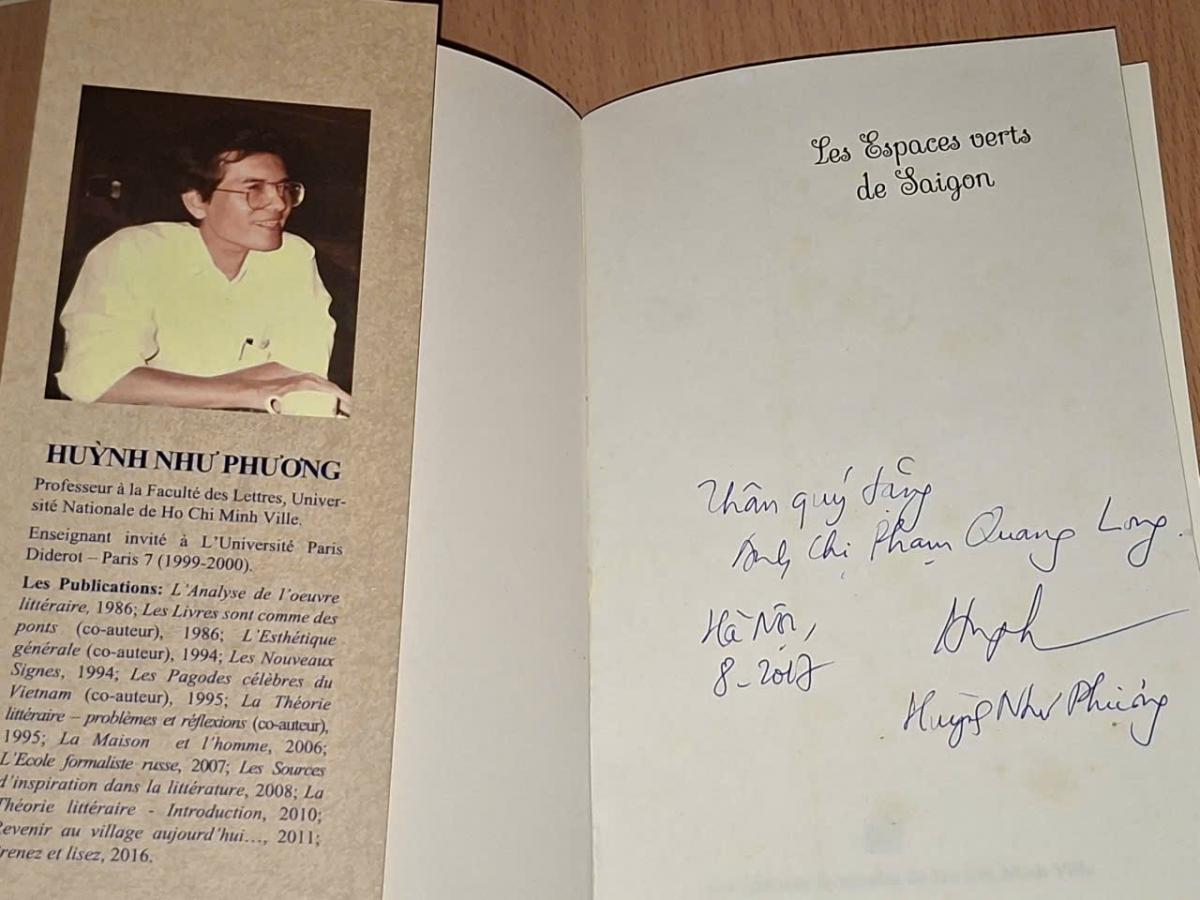 HUỲNH NHƯ PHƯƠNG
Professeur à la Faculté des Lettres, Univer-
sité Nationale de Ho Chi Minh Ville.
Enseignant invité à L'Université Paris
Diderot – Paris 7 (1999-2000).
Les Publications: L'Analyse de l'oeuvre
littéraire, 1986; Les Livres sont comme des
ponts (co-auteur), 1986; L'Esthétique
générale (co-auteur), 1994; Les Nouveaux
Signes, 1994; Les Pagodes célèbres du
Vietnam (co-auteur), 1995; La Théorie
littéraire – problèmes et réflexions (co-auteur),
1995; La Maison et l'homme, 2006;
L'Ecole formaliste russe, 2007; Les Sources
d'inspiration dans la littérature, 2008; La
Théorie littéraire - Introduction, 2010;
Revenir au village aujourd'hui…, 2011;
renez et lisez, 2016.
Les Espaces verts
de Saigon
Thân quý tặng
Anh Chị Phạm Quang Long.
Hà Nội,
8-2017
Huỳnh Như Phương